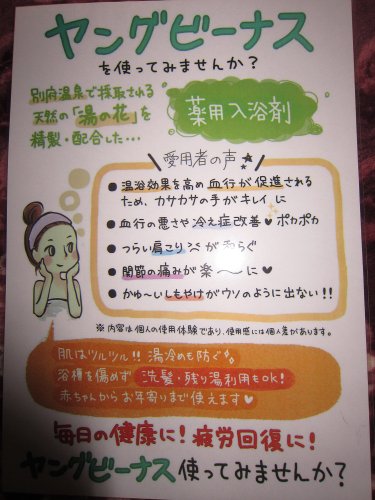 ヤングビーナス
を使ってみませんか?
別府温泉で採取される
天然の「湯の花」を
精製・配合した・・・
薬用入浴剤
愛用者の声
● 温浴効果を高め血行が促進される
ため、カサカサの手がキレイに
● 血行の悪さや冷え症改善♥ポカポカ
● つらい肩こりが和らぐ
● 関節の痛みが楽〜〜に♥
● かゆ〜いしもやけがウソのように出ない!!
※ 内容は個人の使用体験であり、使用感には個人差があります。
肌はツルツル!! 湯冷めも防ぐ。
浴槽を傷めず 洗髪・残り湯利用もOK!
赤ちゃんからお年寄りまで使えます♥
毎日の健康に! 疲労回復に!
ヤングビーナス使ってみませんか?